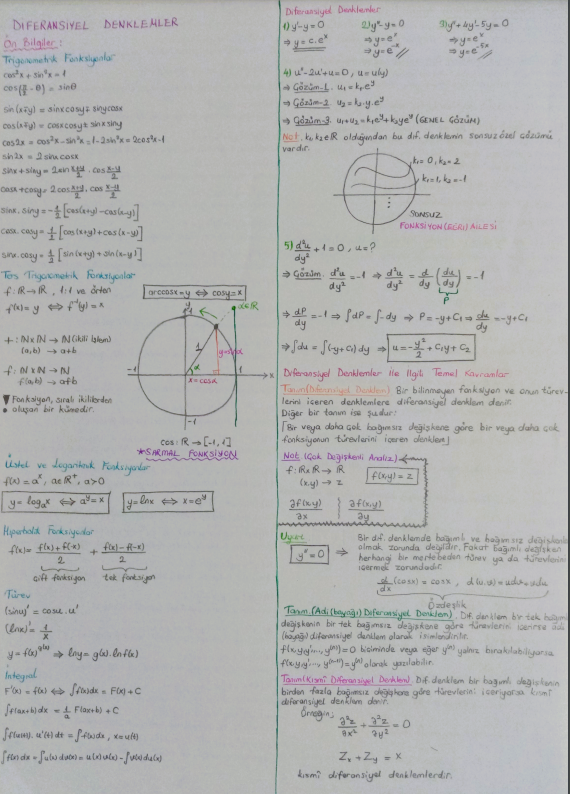 DIFERANSIYEL DENKLEMLER
Ön Bilgiler:
Trigonometrik Fonksiyonlar
cos²x + sin²x = 1
cos(π/2 - θ) = sinθ
sin(x∓y) = sinxcosy ∓ sinycosx
cos(x∓y) = cosxcosy ± sinxsiny
cos2x = cos²x - sin²x = 1-2sin²x = 2cos²x-1
sin2x = 2 sinx.cosx
sinx + siny = 2sin x+y/2 . cos x-y/2
cosx + cosy = 2cos x+y/2 . cos x-y/2
sinx. siny = -1/2 [cos(x+y)-cos(x-y)]
cosx. cosy = 1/2 [cos(x+y)+cos(x-y)]
sinx. cosy = 1/2 [sin(x+y)+sin(x-y)]
Ters Trigonometrik Fonksiyonlar
f: ℝ → ℝ, 1:1 ve örten
f(x) = y ⇔ f⁻¹(y) = x
arccosx = y ⇔ cosy = x
α∈ℝ
+ : ℕxℕ → ℕ (ikili işlem)
(a,b) → a+b
f: ℕxℕ → ℕ
f(a,b) → a+b
Fonksiyon, sıralı ikililerden
oluşan bir kümedir.
1
1
α
x = cosα
-1
1
x
-1
cos: ℝ → [-1, 1]
*SARMAL FONKSİYON
Üstel ve Logaritmik Fonksiyonlar
f(x) = aˣ, a∈ℝ⁺, a>0
y = logₐx ⇔ aʸ = x
y = lnx ⇔ x = eʸ
Hiperbolik Fonksiyonlar
f(x) = f(x)+f(-x)/2 + f(x)-f(-x)/2
çift fonksiyon tek fonksiyon
Türev
(sinu)' = cosu. u'
(lnx)' = 1/x
y = f(x)^g(x) ⇒ lny = g(x). lnf(x)
İntegral
F'(x) = f(x) ⇔ ∫f(x)dx = F(x) + C
∫f(ax+b)dx = 1/a F(ax+b) + C
∫f(u(t)). u'(t) dt = ∫f(x)dx, x=u(t)
∫f(x)dx = ∫u(x) dv(x) = u(x)v(x) - ∫v(x)du(x)
Diferansiyel Denklemler
1) y'-y = 0 2) y''-y = 0 3) y''+4y'-5y = 0
⇒ y = c.eˣ ⇒ y = eˣ ⇒ y = eˣ
⇒ y = e⁻ˣ ⇒ y = e⁻⁵ˣ
4) u''-2u'+u = 0, u = u(y)
⇒ Çözüm-1. u₁ = k₁eʸ
⇒ Çözüm-2. u₂ = k₂.y.eʸ
⇒ Çözüm-3. u₁+u₂ = k₁eʸ + k₂yeʸ (GENEL ÇÖZÜM)
Not. k₁,k₂∈ℝ olduğundan bu dif. denklemin sonsuz özel çözümü
vardır.
k₁ = 0, k₂ = 2
k₁ = 1, k₂ = -1
SONSUZ
FONKSİYON (EĞRİ) AİLESİ
5) d²u/dy² + 1 = 0, u = ?
⇒ Çözüm. d²u/dy² = -1 ⇒ d²u/dy² = d/dy (du/dy) = -1
P
⇒ dP/dy = -1 ⇒ ∫dP = ∫-dy ⇒ P = -y + C₁ ⇒ du/dy = -y+C₁
⇒ ∫du = ∫(-y+C₁)dy ⇒ u = -y²/2 + C₁y + C₂
Diferansiyel Denklemler ile İlgili Temel Kavramlar
Tanım (Diferansiyel Denklem) Bir bilinmeyen fonksiyon ve onun türev-
lerini içeren denklemlere diferansiyel denklem denir.
Diğer bir tanım ise şudur:
[Bir veya daha çok bağımsız değişkene göre bir veya daha çok
fonksiyonun türevlerini içeren denklem]
Not (Çok Değişkenli Analiz)
f: ℝxℝ → ℝ
(x,y) → z
f(x,y) = z
∂f(x,y)/∂x } ∂f(x,y)/∂y
Uyarı
y'' = 0 ⇒
Bir dif. denklemde bağımlı ve bağımsız değişkenler
olmak zorunda değildir. Fakat bağımlı değişken
herhangi bir mertebeden türev ya da türevlerini
içermek zorundadır.
d/dx (cosx) = cosx, d(u.v) = udv + vdu
Özdeşlik
Tanım. (Adi (bayağı) Diferansiyel Denklem). Dif. denklem bir tek bağımlı
değişkenin bir tek bağımsız değişkene göre türevlerini içerirse adi
(bayağı) diferansiyel denklem olarak isimlendirilir.
f(x,y,y',...,y⁽ⁿ⁾) = 0 biçiminde veya eğer y⁽ⁿ⁾ yalnız bırakılabiliyorsa
f(x,y,y',...,y⁽ⁿ⁻¹⁾) = y⁽ⁿ⁾ olarak yazılabilir.
Tanım (Kısmi Diferansiyel Denklem). Dif. denklem bir bağımlı değişkenin
birden fazla bağımsız değişkene göre türevlerini içeriyorsa kısmi
diferansiyel denklem denir.
Örneğin;
∂²z/∂x² + ∂²z/∂y² = 0
Zₓ + Zᵧ = x
kısmi diferansiyel denklemlerdir.